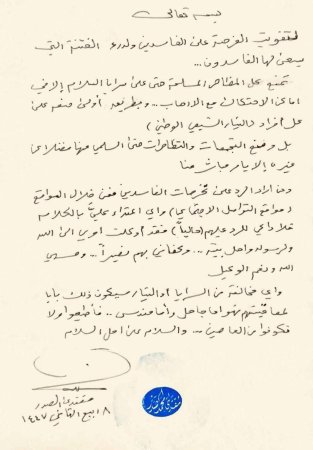 بسمه تعالى
لتفويت الفرصة على الفاسدين ولدرء الفتنة التي
يسعى لها الفاسدون...
تمنع كل المظاهر المسلحة حتى على سرايا السلام إلا في
أماكن الاحتكاك مع الإرهاب... وبطريقة أولى منعه على
كل أفراد (التيار الشيعي الوطني)
بل ومنع التجمعات والتظاهرات حتى السلمي منها فضلا عن
غيرها إلا بأمر مباشر منا
ومن أراد الرد على مخرجات الفاسدين فمن خلال المواقع
(مواقع التواصل الاجتماعي) وأي اعتداء عليّ بالكلام
فلا داعي للرد عليهم (حاليا) فقد أوكلت أمري إلى الله
ولرسوله وأهل بيته... وكفاني بهم نصيراً... وحسبي
الله ونعم الوكيل
وأي مخالفة من السرايا أو التيار سيكون ذلك بابا
لمعاقبتهم فهو إما جاهل وإما مندس.. فأطيعوا ولا
تكونوا من العاصين.. والسلام على أهل السلام
مقتدى الصدر
٨ ربيع الثاني ١٤٤٧